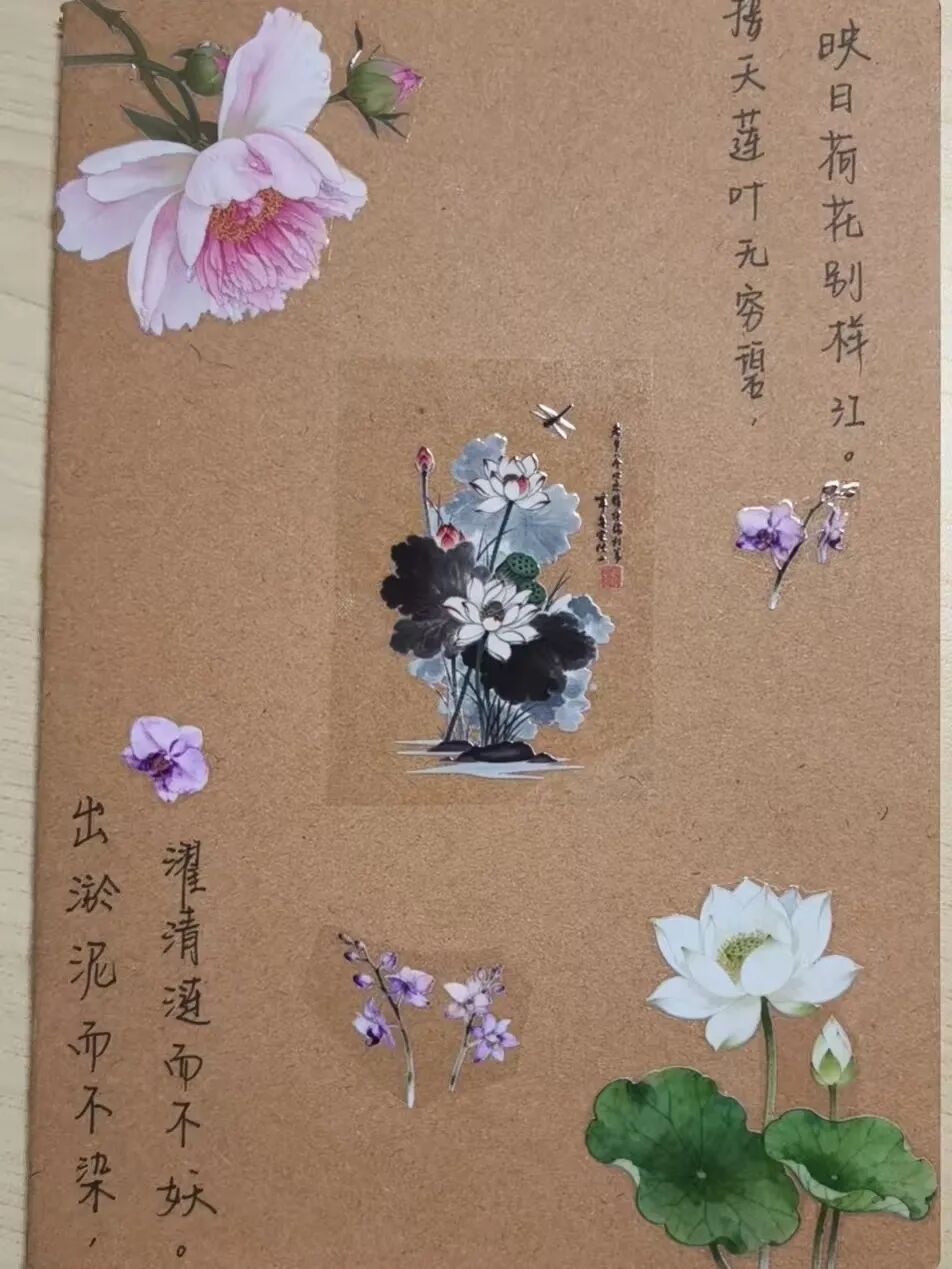 接天莲叶无穷碧，
映日荷花别样江。
出淤泥而不染，
濯清涟而不妖。